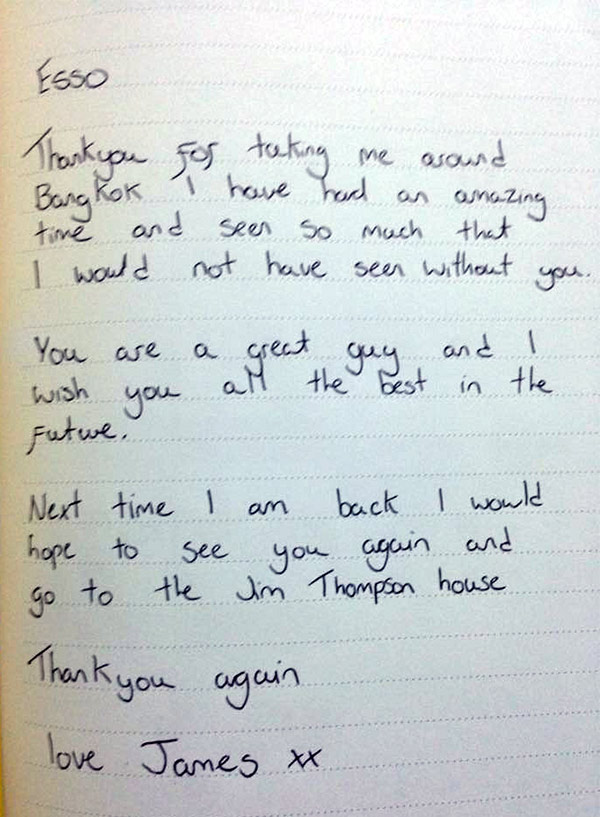 Esso
Thankyou for taking me around
Bangkok I have had an amazing
time and seen so much that
I would not have seen without you.
You are a great guy and I
wish you all the best in the
Future.
Next time I am back I would
hope to see you again and
go to the Jim Thompson house
Thankyou again
love James xx